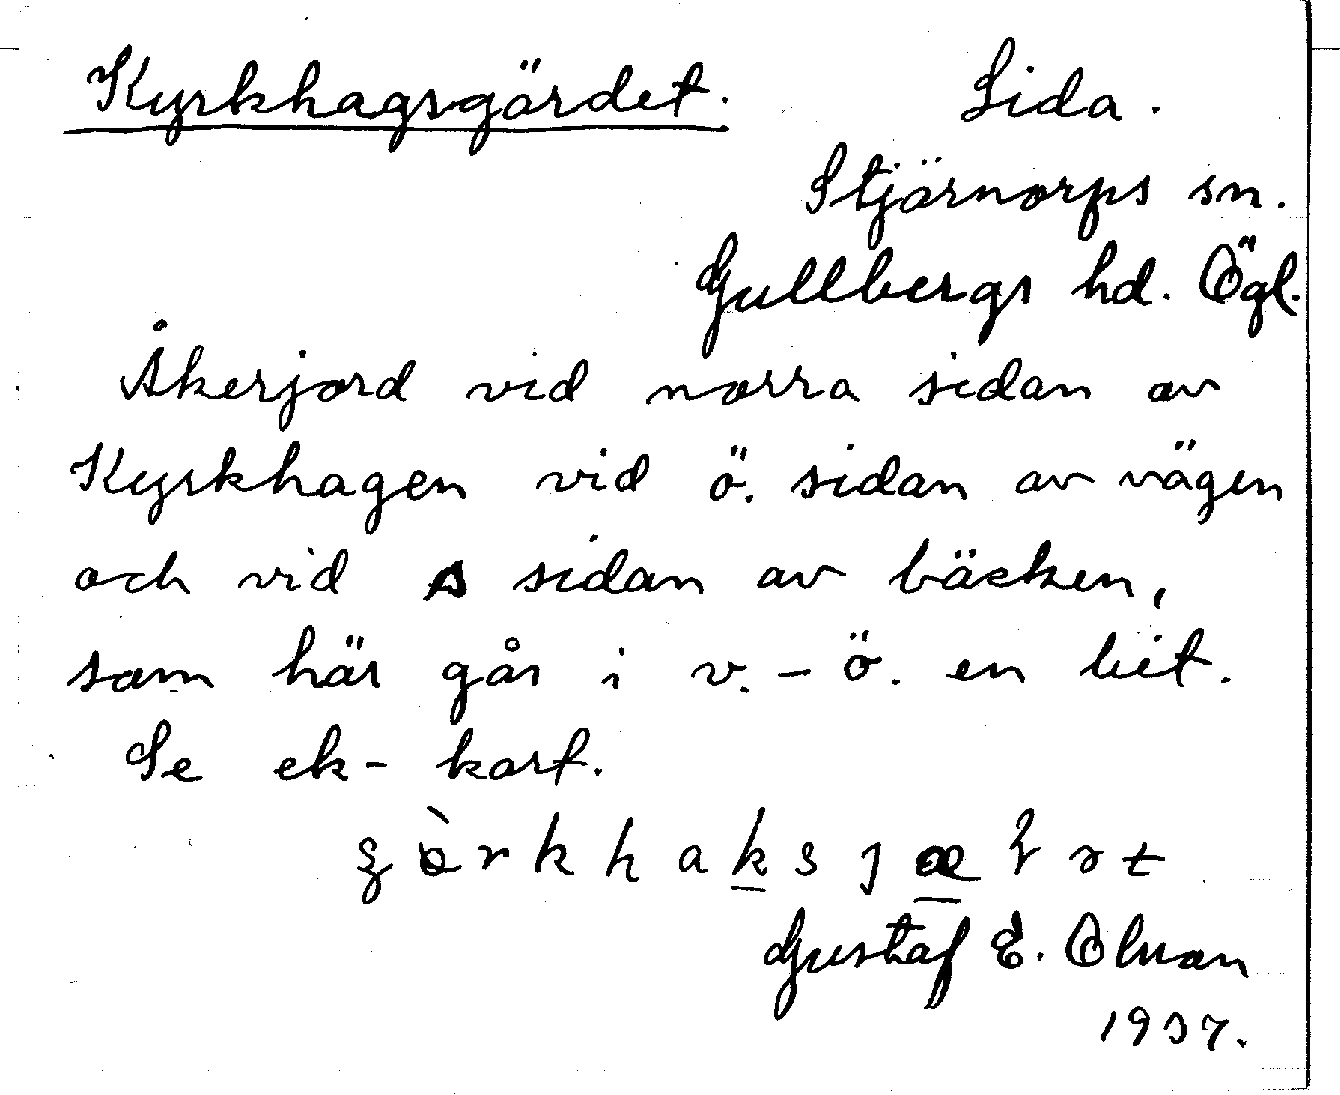 Kyrkhagsgärdet. Sida.
Stjärnorps sn.
Gullbergs hd. Ögl.
Åkerjord vid norra sidan av
Kyrkhagen vid ö. sidan av vägen
och vid s sidan av bäcken,
som här går i v. – ö. en bit.
Se ek- kart.
Gustaf E. Olson
1937.